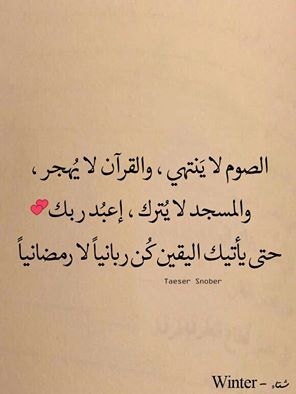 الصوم لا يَنتهي ، والقرآن لا يُهجر ،
والمسجد لا يُترك ، إعبُد ربك💕
حتى يأتيك اليقين كُن ربانياً لا رمضانياً
Taeser Snober
شتاء – Winter